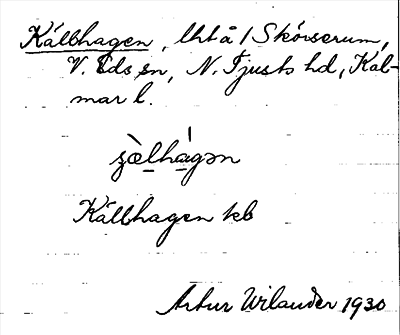 Källhagen, lht å / Skörserum,
V. Eds sn, N. Tjusts hd, Kal-
mar l.
Källhagen kb
Artur Wilander 1930